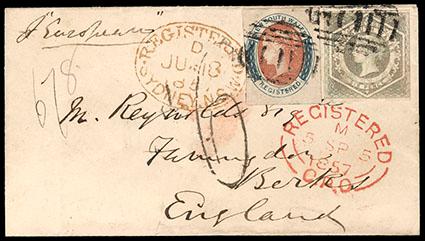 p "European"
678
REGISTERED
D
JU 18
SYDNEY N.S.W.
NEW SOUTH WALES
REGISTERED
SIX PENCE
M. Reynolds Esq
Farringdon
Berks
England
REGISTERED
M
5 SP 5
1857
G.P.O.